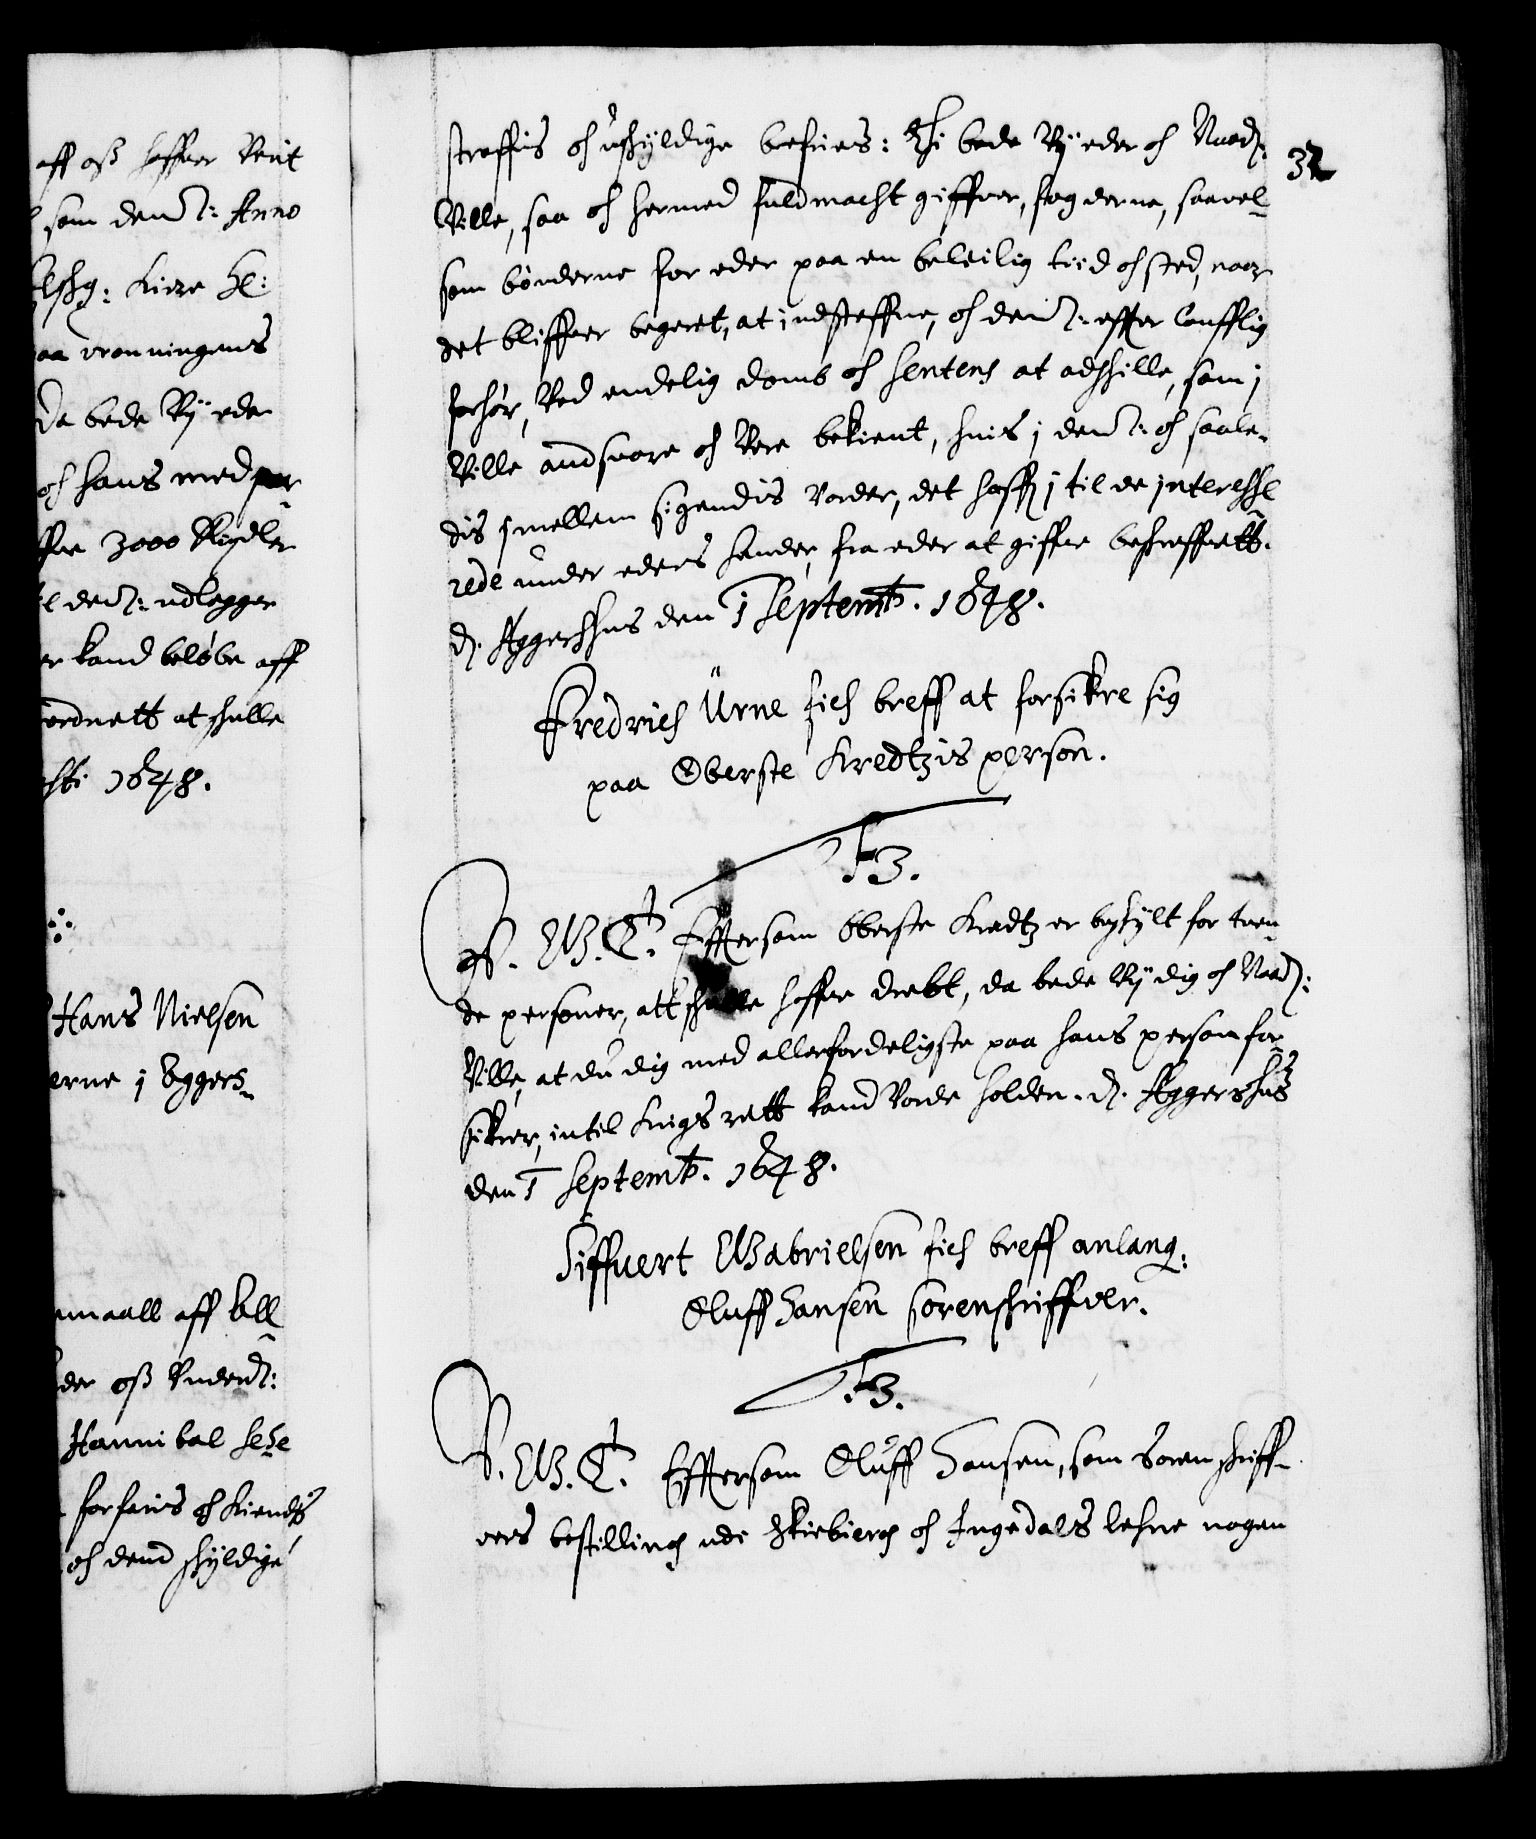 aff oß haffver Verit
som dend: Anno
elsßg: Kiere Hl:
aa Cronningens
Da bede Vÿ eder
och hans med par
ffve 3000 Rixdler
dend: udlegger
er kand beløbe aff
ordnett at schulle
1648.
Hans Nielsen
erne j Agers-
nmaall aff All
der oß Underd:
Hannibal Sehe
forfares och Kiendis
och dend schÿldige
32
straffis och uschÿldige befries: Thi bede Vÿ eder och Naad:
Ville, saa och hermed fuldmacht giffver, fogderne, saavel-
som bønderne for eder paa en beleilig tiid och sted, naar
det bliffver begeret, at indsteffne, och dend: effter Loufflig
forhør, Ved endelig domb och Sentens at adschille, som j
Ville andsvare och Vere bekient, hvis j dend: och saale-
dis jmellem sigendis vorder, det haffver j til de jnteresse-
rede under eders hender, fra eder at giffve beschreffvett.
d. Aggershus den 1 Septemb. 1648.
Fredrich Ürne fich breff at forsikre sig
paa Oberste Kredtzis person.
F 3.
C. G. T. Effttersom Oberste Kredtz er beschÿlt for tven-
de personer, att schulle haffve drebt, da bede Vÿ dig och Naad:
Ville, at du dig med allerfordeligste paa hans person for-
sikrer, intil Krigs rett kand Vorde holden. d. Aggershus
den 1 Septemb. 1648.
Siffvert Gabrielsen fich breff anlang:
Oluff Hansen Sorenschriffver.
F 3.
C. G. T. Effttersom Oluff Hansen, som Sorenschriff-
vers bestilling udi Skieberg och Jngedals lehne nogen